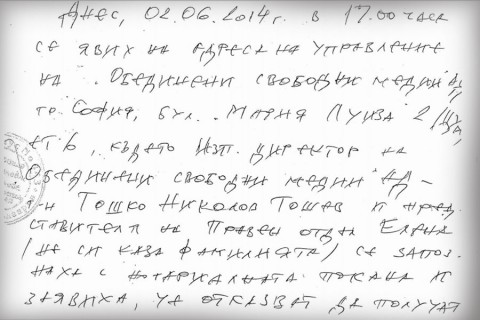 Днес, 02.06.2014г. в 17.00 часа
се явих на адреса на управление
на "Обединени свободни медии" АД,
гр. София, бул. "Мария Луиза" 2 /ЦУМ/,
ет 6, където Изп. директор на
Обединени свободни медии" АД -
г-н Тошко Николов Тошев и пред-
ставител на Правен отдел Елена
/не си каза фамилията/ се запоз-
наха с нотариалната покана и
заявиха, че отказват да получат